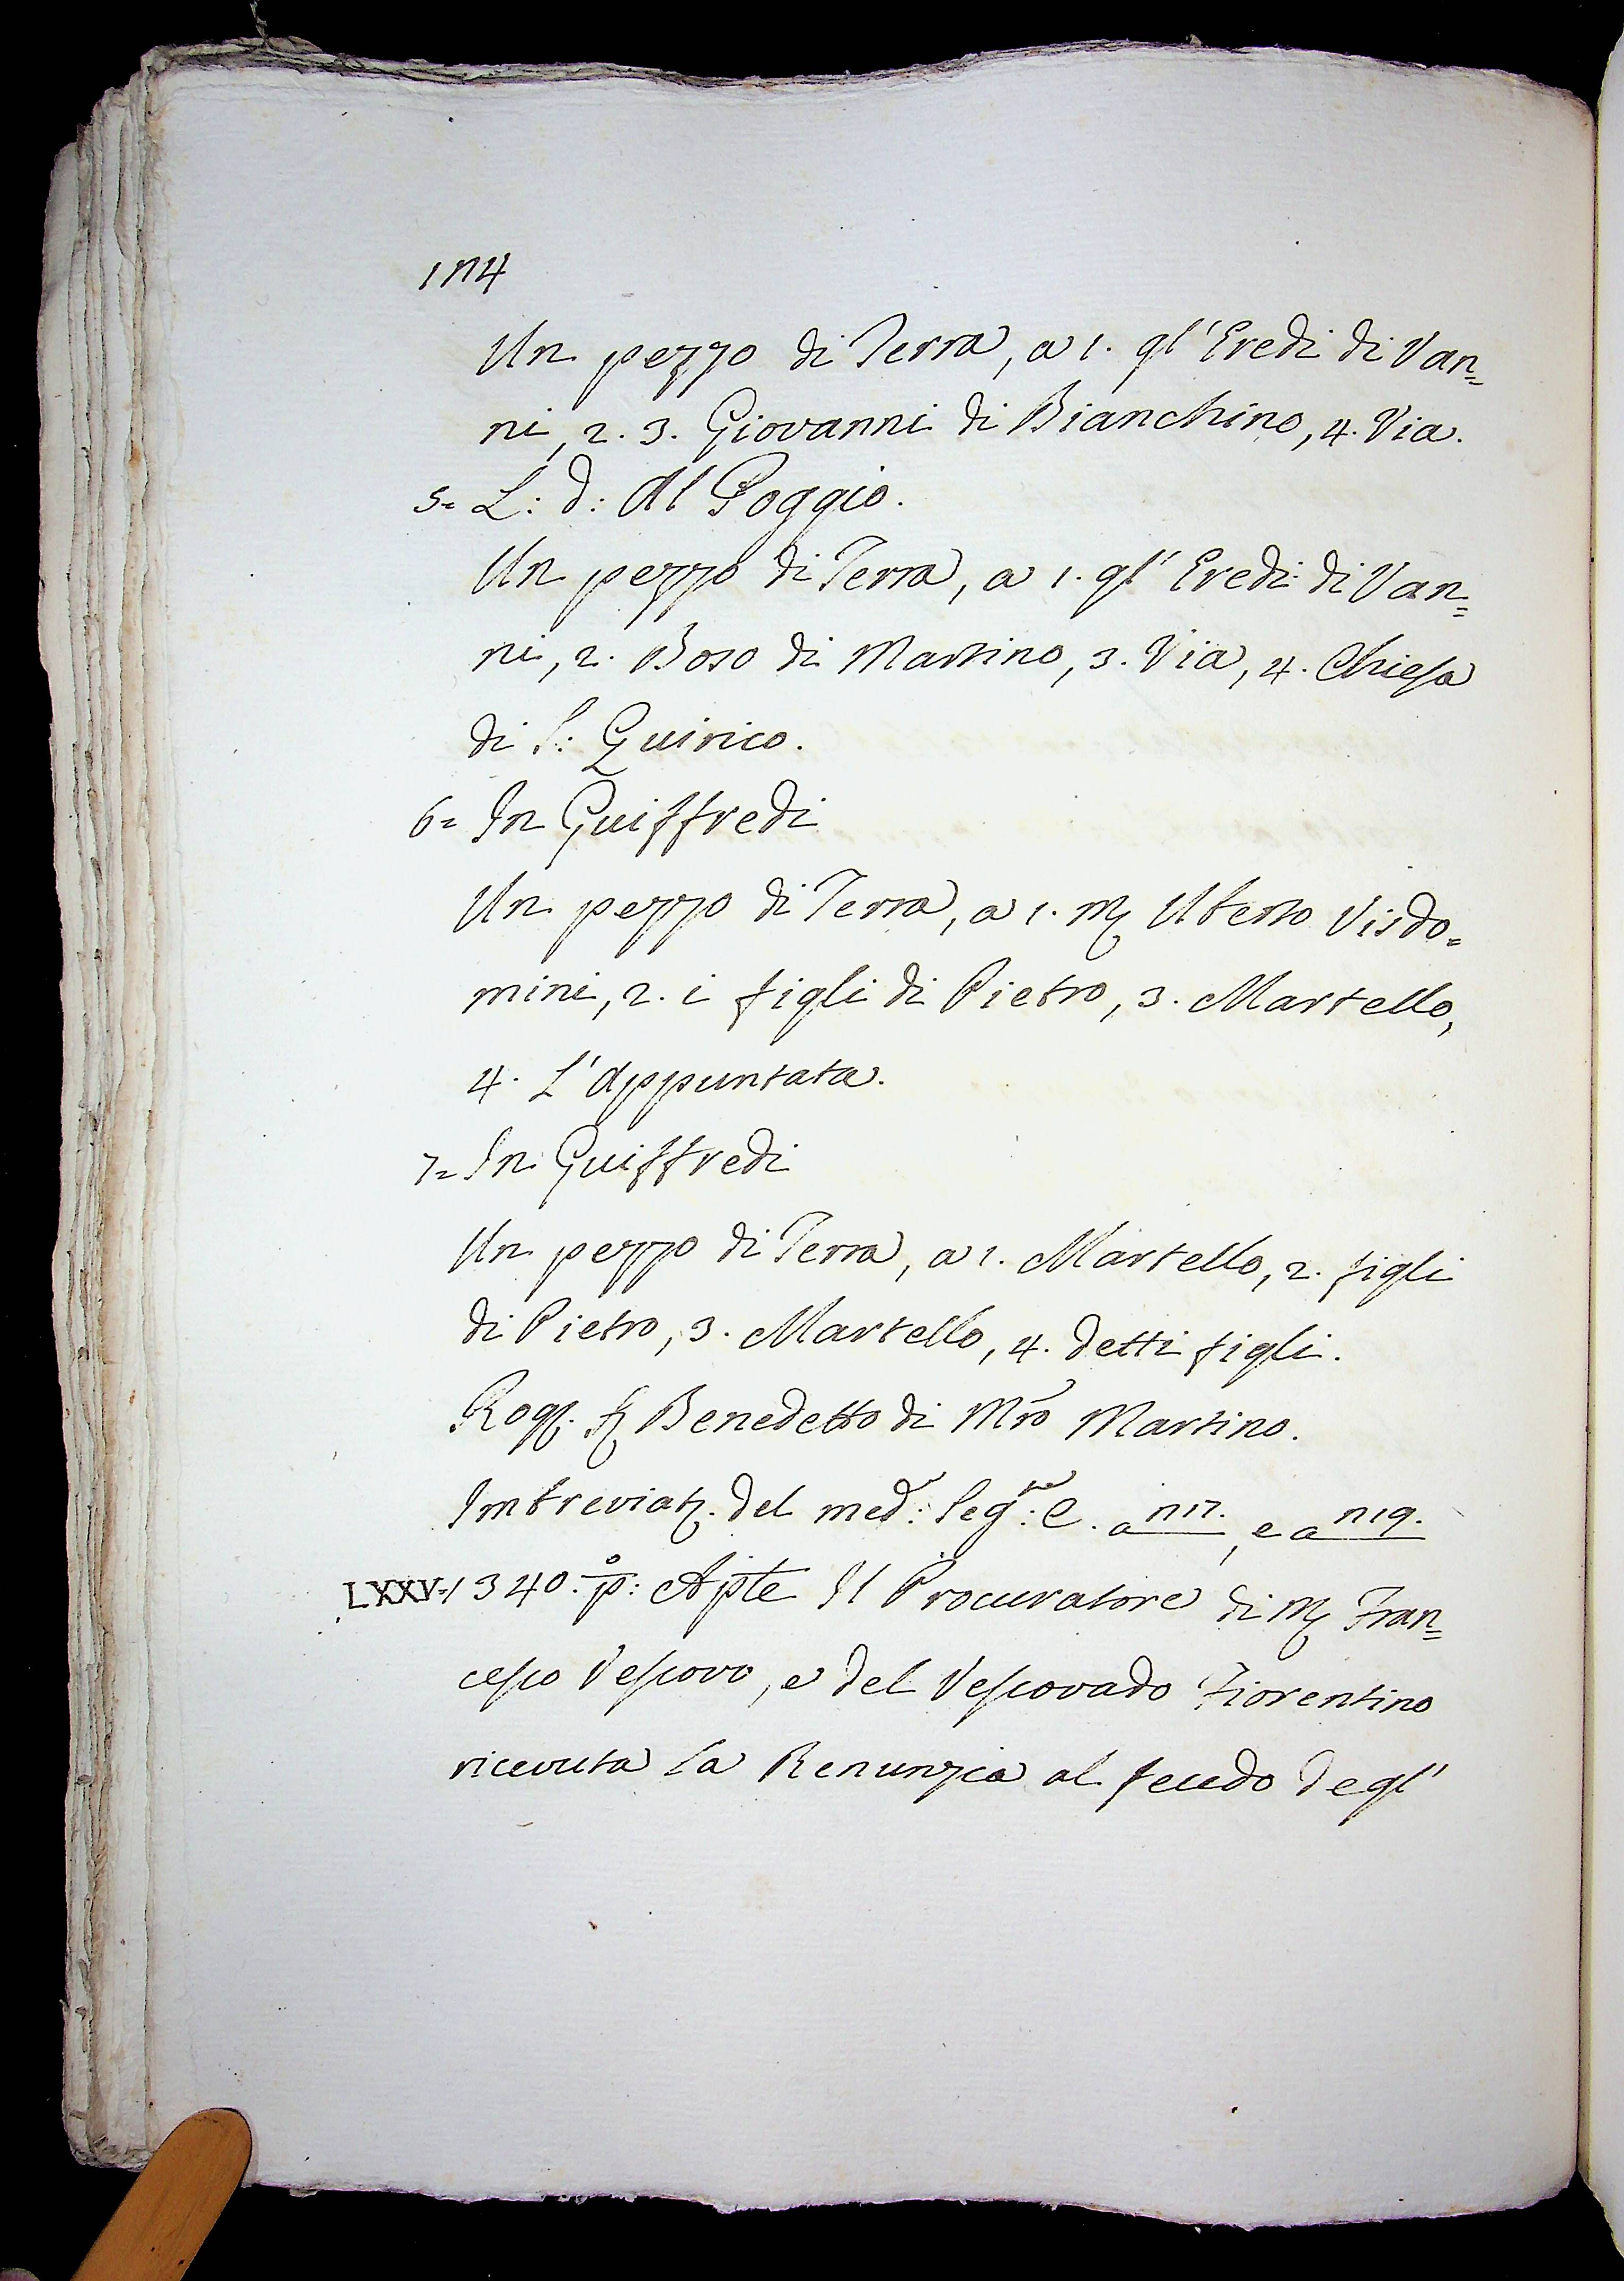 174
Un pezzo di Terra, a 1. gl' Eredi di Van=
ni, 2. 3. Giovanni di Bianchino, 4. Via.
5= L: d: Al Poggio.
Un pezzo di Terra, a 1. gl' Eredi di Van=
ni, 2. Boso di Martino, 3. Via, 4. Chiesa
di S: Quirico.
6= In Guiffredi
Un pezzo di Terra, a 1. M Uberto Visdo=
mini, 2. i figli di Pietro, 3. Martello,
4. L'Appuntata.
7= In Guiffredi
Un pezzo di Terra, a 1. Martello, 2. figli
di Pietro, 3. Martello, 4. detti figli.
Rog. S Benedetto di Mro Martino.
Imbreviaz. del med: Seg:re C. a 717., e a 719.
LXXV=1340. po: Apte Il Procuratore di M Fran=
cesco Vescovo, e del Vescovado Fiorentino
ricevuta la Renunzia al feudo degl'